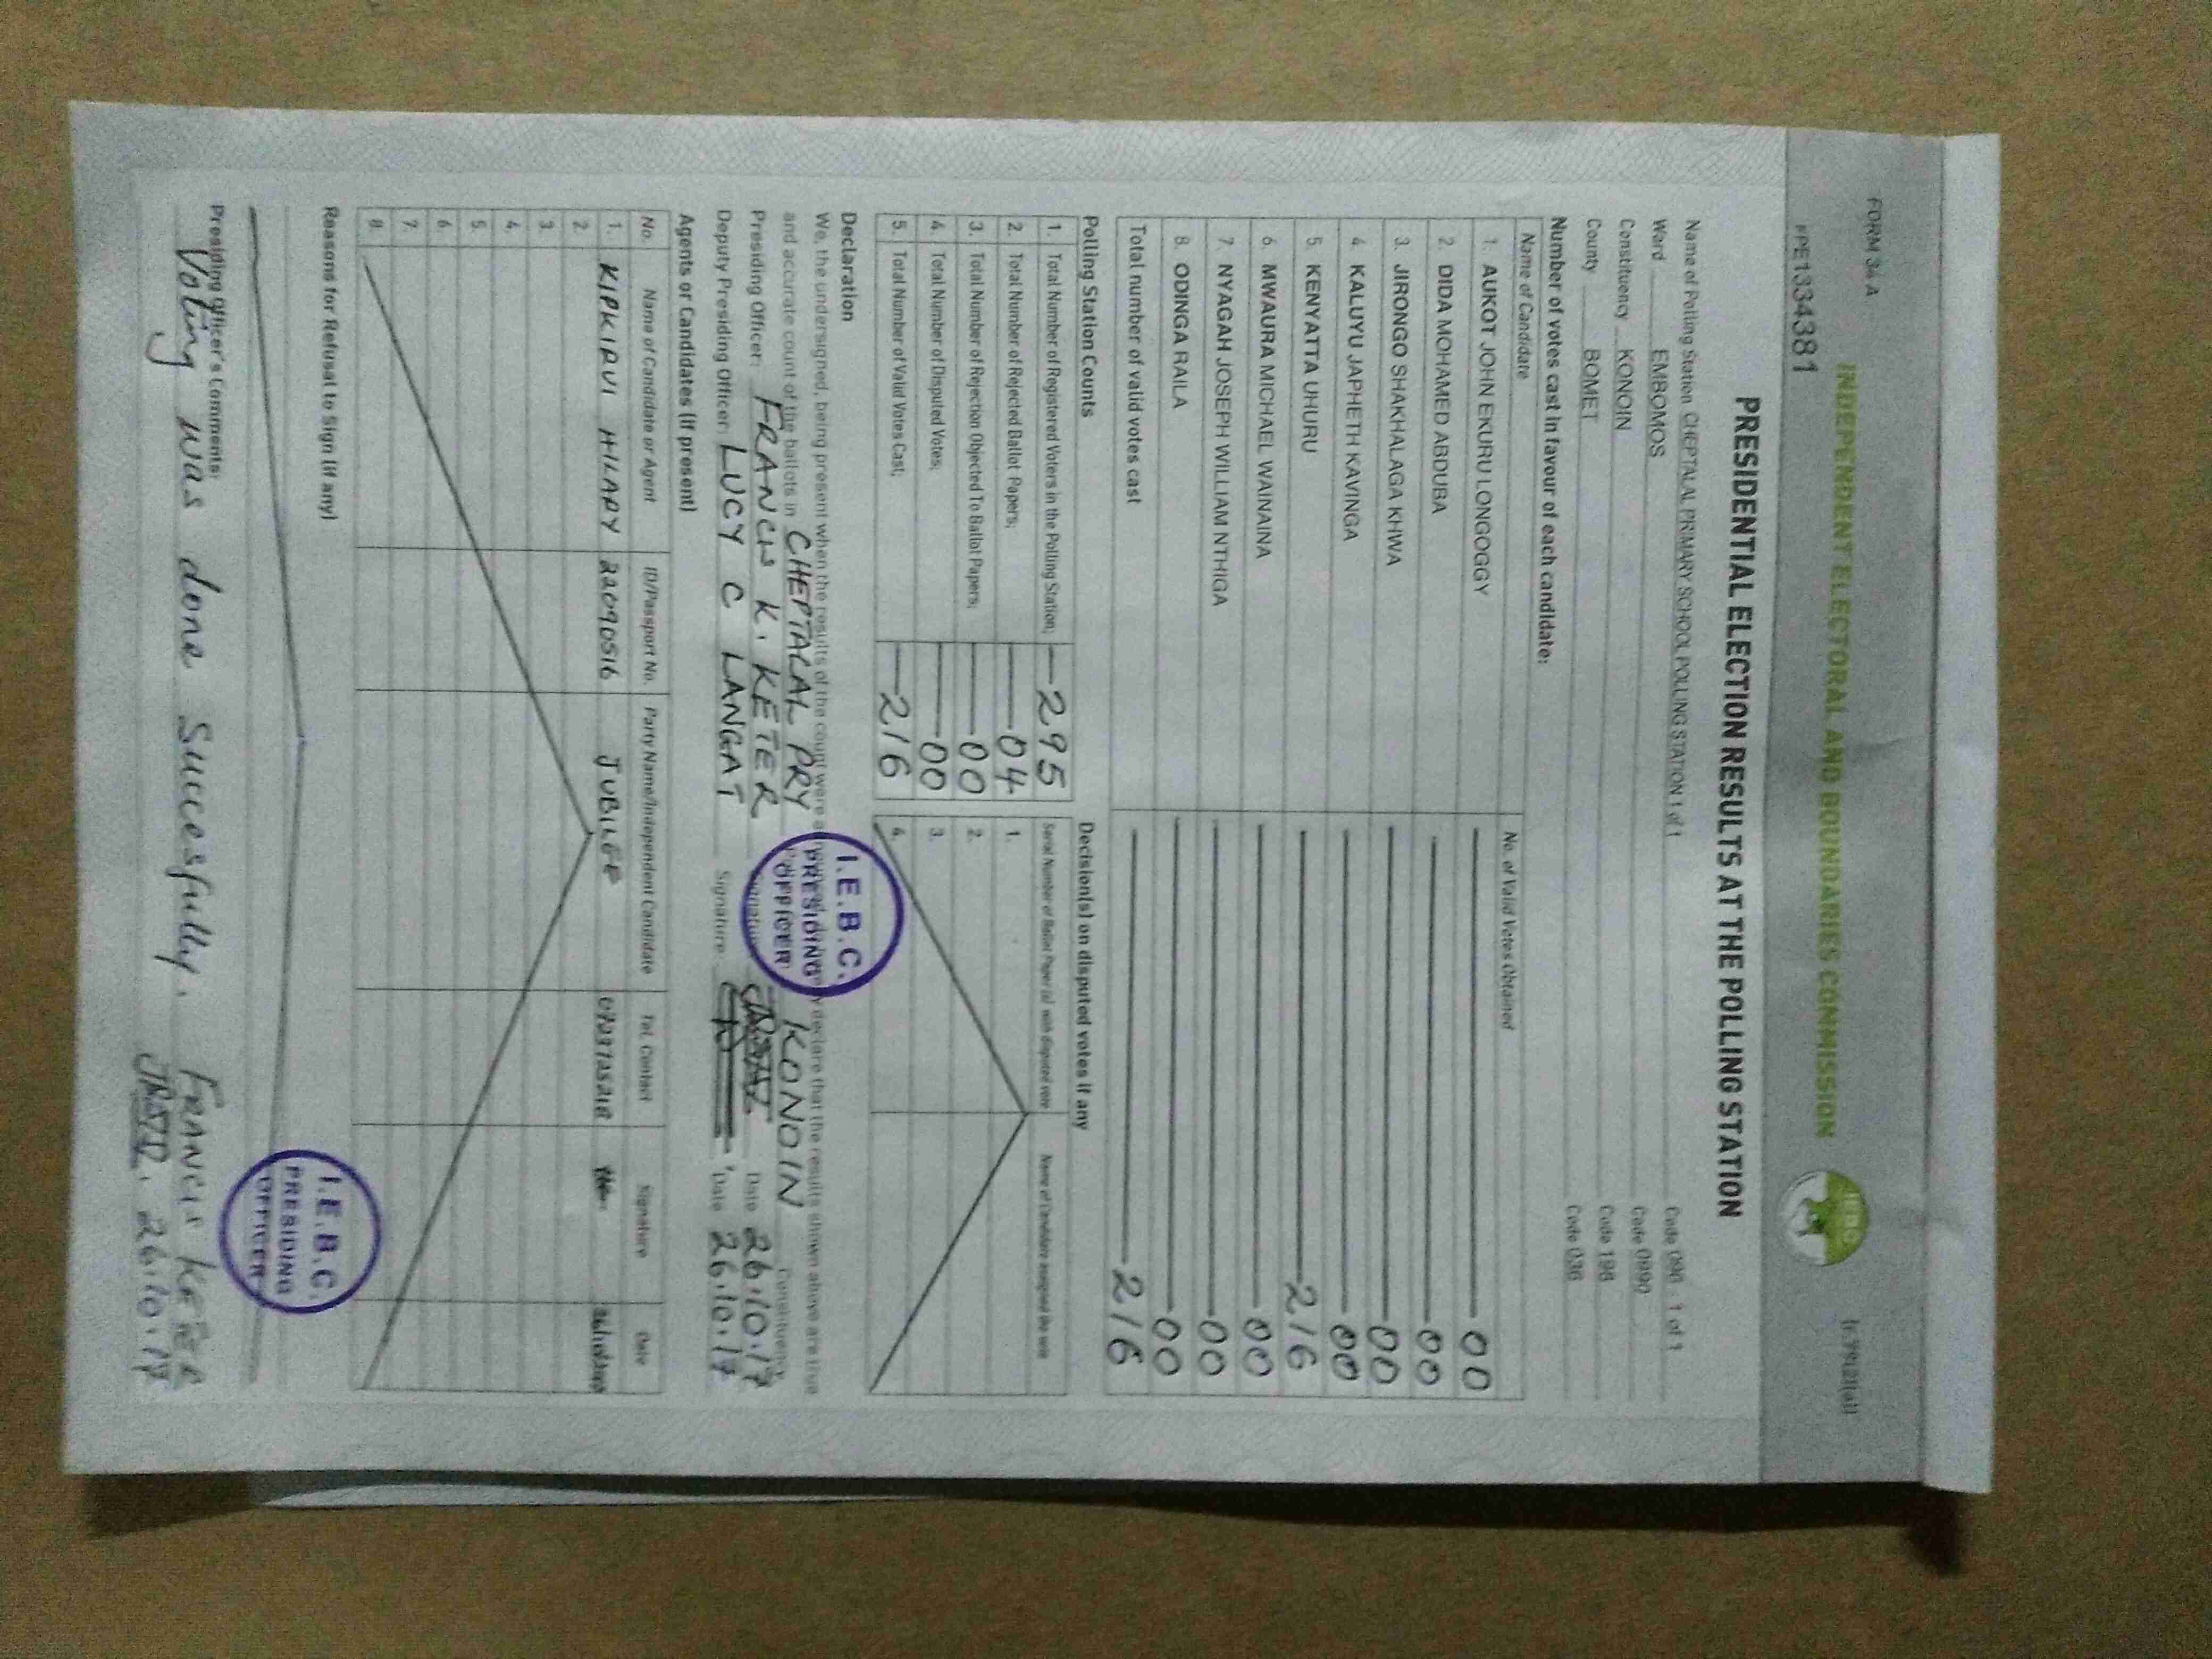 FORM 34 A
INDEPENDENT ELECTORAL AND BOUNDARIES COMMISSION
(r.79(2)(a))
PE1334381
IEBC
PRESIDENTIAL ELECTION RESULTS AT THE POLLING STATION
Name of Polling Station CHEPTALAL PRIMARY SCHOOL POLLING STATION 1 of 1 Code 096 - 1 of 1
Ward EMBOMOS Code 0990
Constituency KONOIN Code 198
County BOMET Code 036
Number of votes cast in favour of each candidate:
Name of Candidate No. of Valid Votes Obtained
1. AUKOT JOHN EKURU LONGOGGY 00
2. DIDA MOHAMED ABDUBA 00
3. JIRONGO SHAKHALAGA KHWA 00
4. KALUYU JAPHETH KAVINGA 00
5. KENYATTA UHURU 216
6. MWAURA MICHAEL WAINAINA 00
7. NYAGAH JOSEPH WILLIAM NTHIGA 00
8. ODINGA RAILA 00
Total number of valid votes cast 216
Polling Station Counts Decision(s) on disputed votes if any
1. Total Number of Registered Voters in the Polling Station; 295
2. Total Number of Rejected Ballot Papers; 04
3. Total Number of Rejection Objected To Ballot Papers; 00
4. Total Number of Disputed Votes; 00
5. Total Number of Valid Votes Cast; 216
Serial Number of Ballot Paper (s) with disputed vote Name of Candidate assigned the vote
1.
2.
3.
4.
Declaration
We, the undersigned, being present when the results of the count were declare that the results shown above are true
and accurate count of the ballots in CHEPTALAL PRY KONOIN Constituency
Presiding Officer: FRANCIS K. KETER Signature Date 26.10.17
Deputy Presiding Officer: LUCY C LANGAT Signature Date 26.10.17
I.E.B.C.
PRESIDING
OFFICER
Agents or Candidates (if present)
No. Name of Candidate or Agent ID/Passport No. Party Name/Independent Candidate Tel. Contact Signature Date
1. KIPKIRUI HILARY 22090516 JUBILEE
2.
3.
4.
5.
6.
7.
8.
Reasons for Refusal to Sign (if any)
I.E.B.C.
PRESIDING
OFFICER
Presiding Officer's Comments:
Voting was done Successfully. FRANCIS KETER
26.10.17